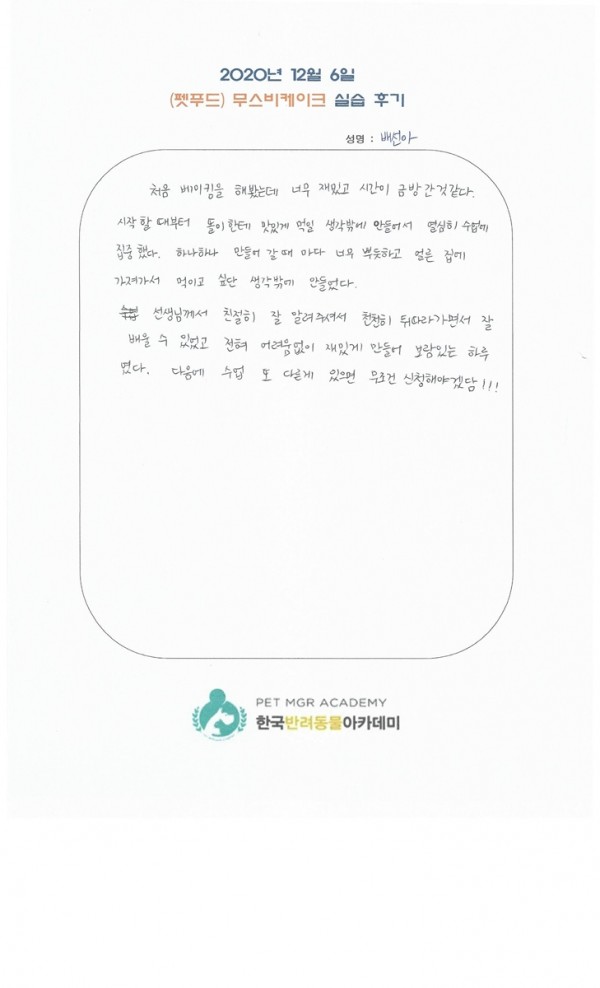 2020년 12월 6일
(펫푸드) 무스비케이크 실습 후기
성명 : 배선아
처음 베이킹을 해봤는데 너무 재밌고 시간이 금방 간것같다.
시작할 때부터 돌이한테 맛있게 먹일 생각밖에 안들어서 열심히 수업에
집중했다. 하나하나 만들어 갈 때 마다 너무 뿌듯하고 얼른 집에
가져가서 먹이고 싶단 생각밖에 안들었다.
선생님께서 친절히 잘 알려주셔서 천천히 뒤따라가면서 잘
배울 수 있었고 전혀 어려움없이 재밌게 만들어 보람있는 하루
였다. 다음에 수업 또 다르게 있으면 무조건 신청해야겠담!!!
PET MGR ACADEMY
한국반려동물아카데미